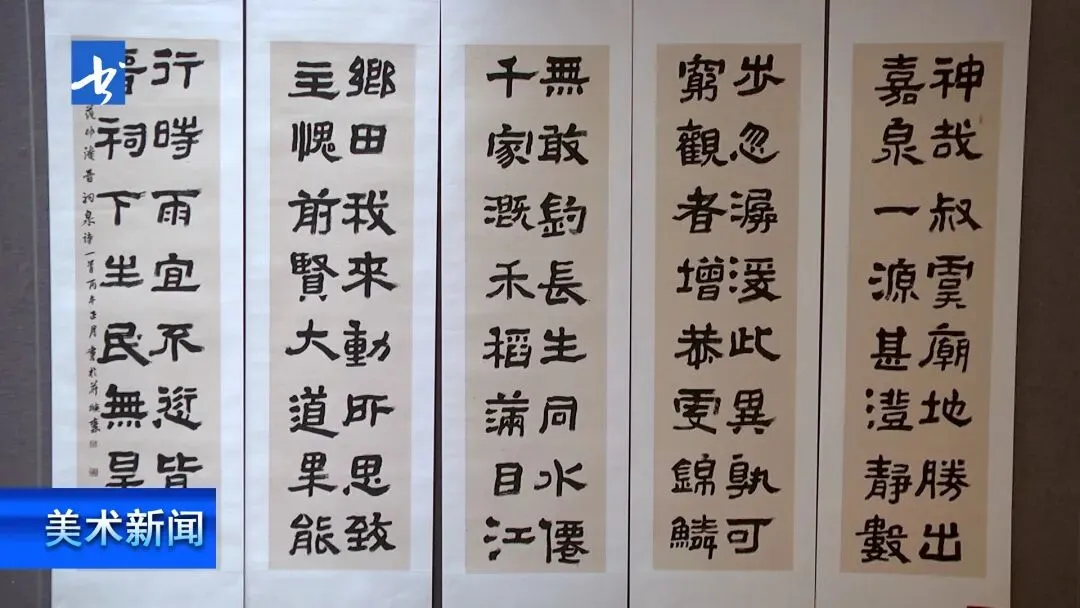 神哉叔虞廟地勝出
嘉泉一源甚澄靜數
步忽潺湲此異孰可
窮觀者增恭虔錦鱗
無敢釣長生同水僊
千家溉禾稻滿目江
鄉田我來動所思致
主愧前賢大道果能
行時雨宜不愆皆
晉祠下生民無旱
范仲淹晉祠泉詩一首丙午正月書於并
书
美术新闻